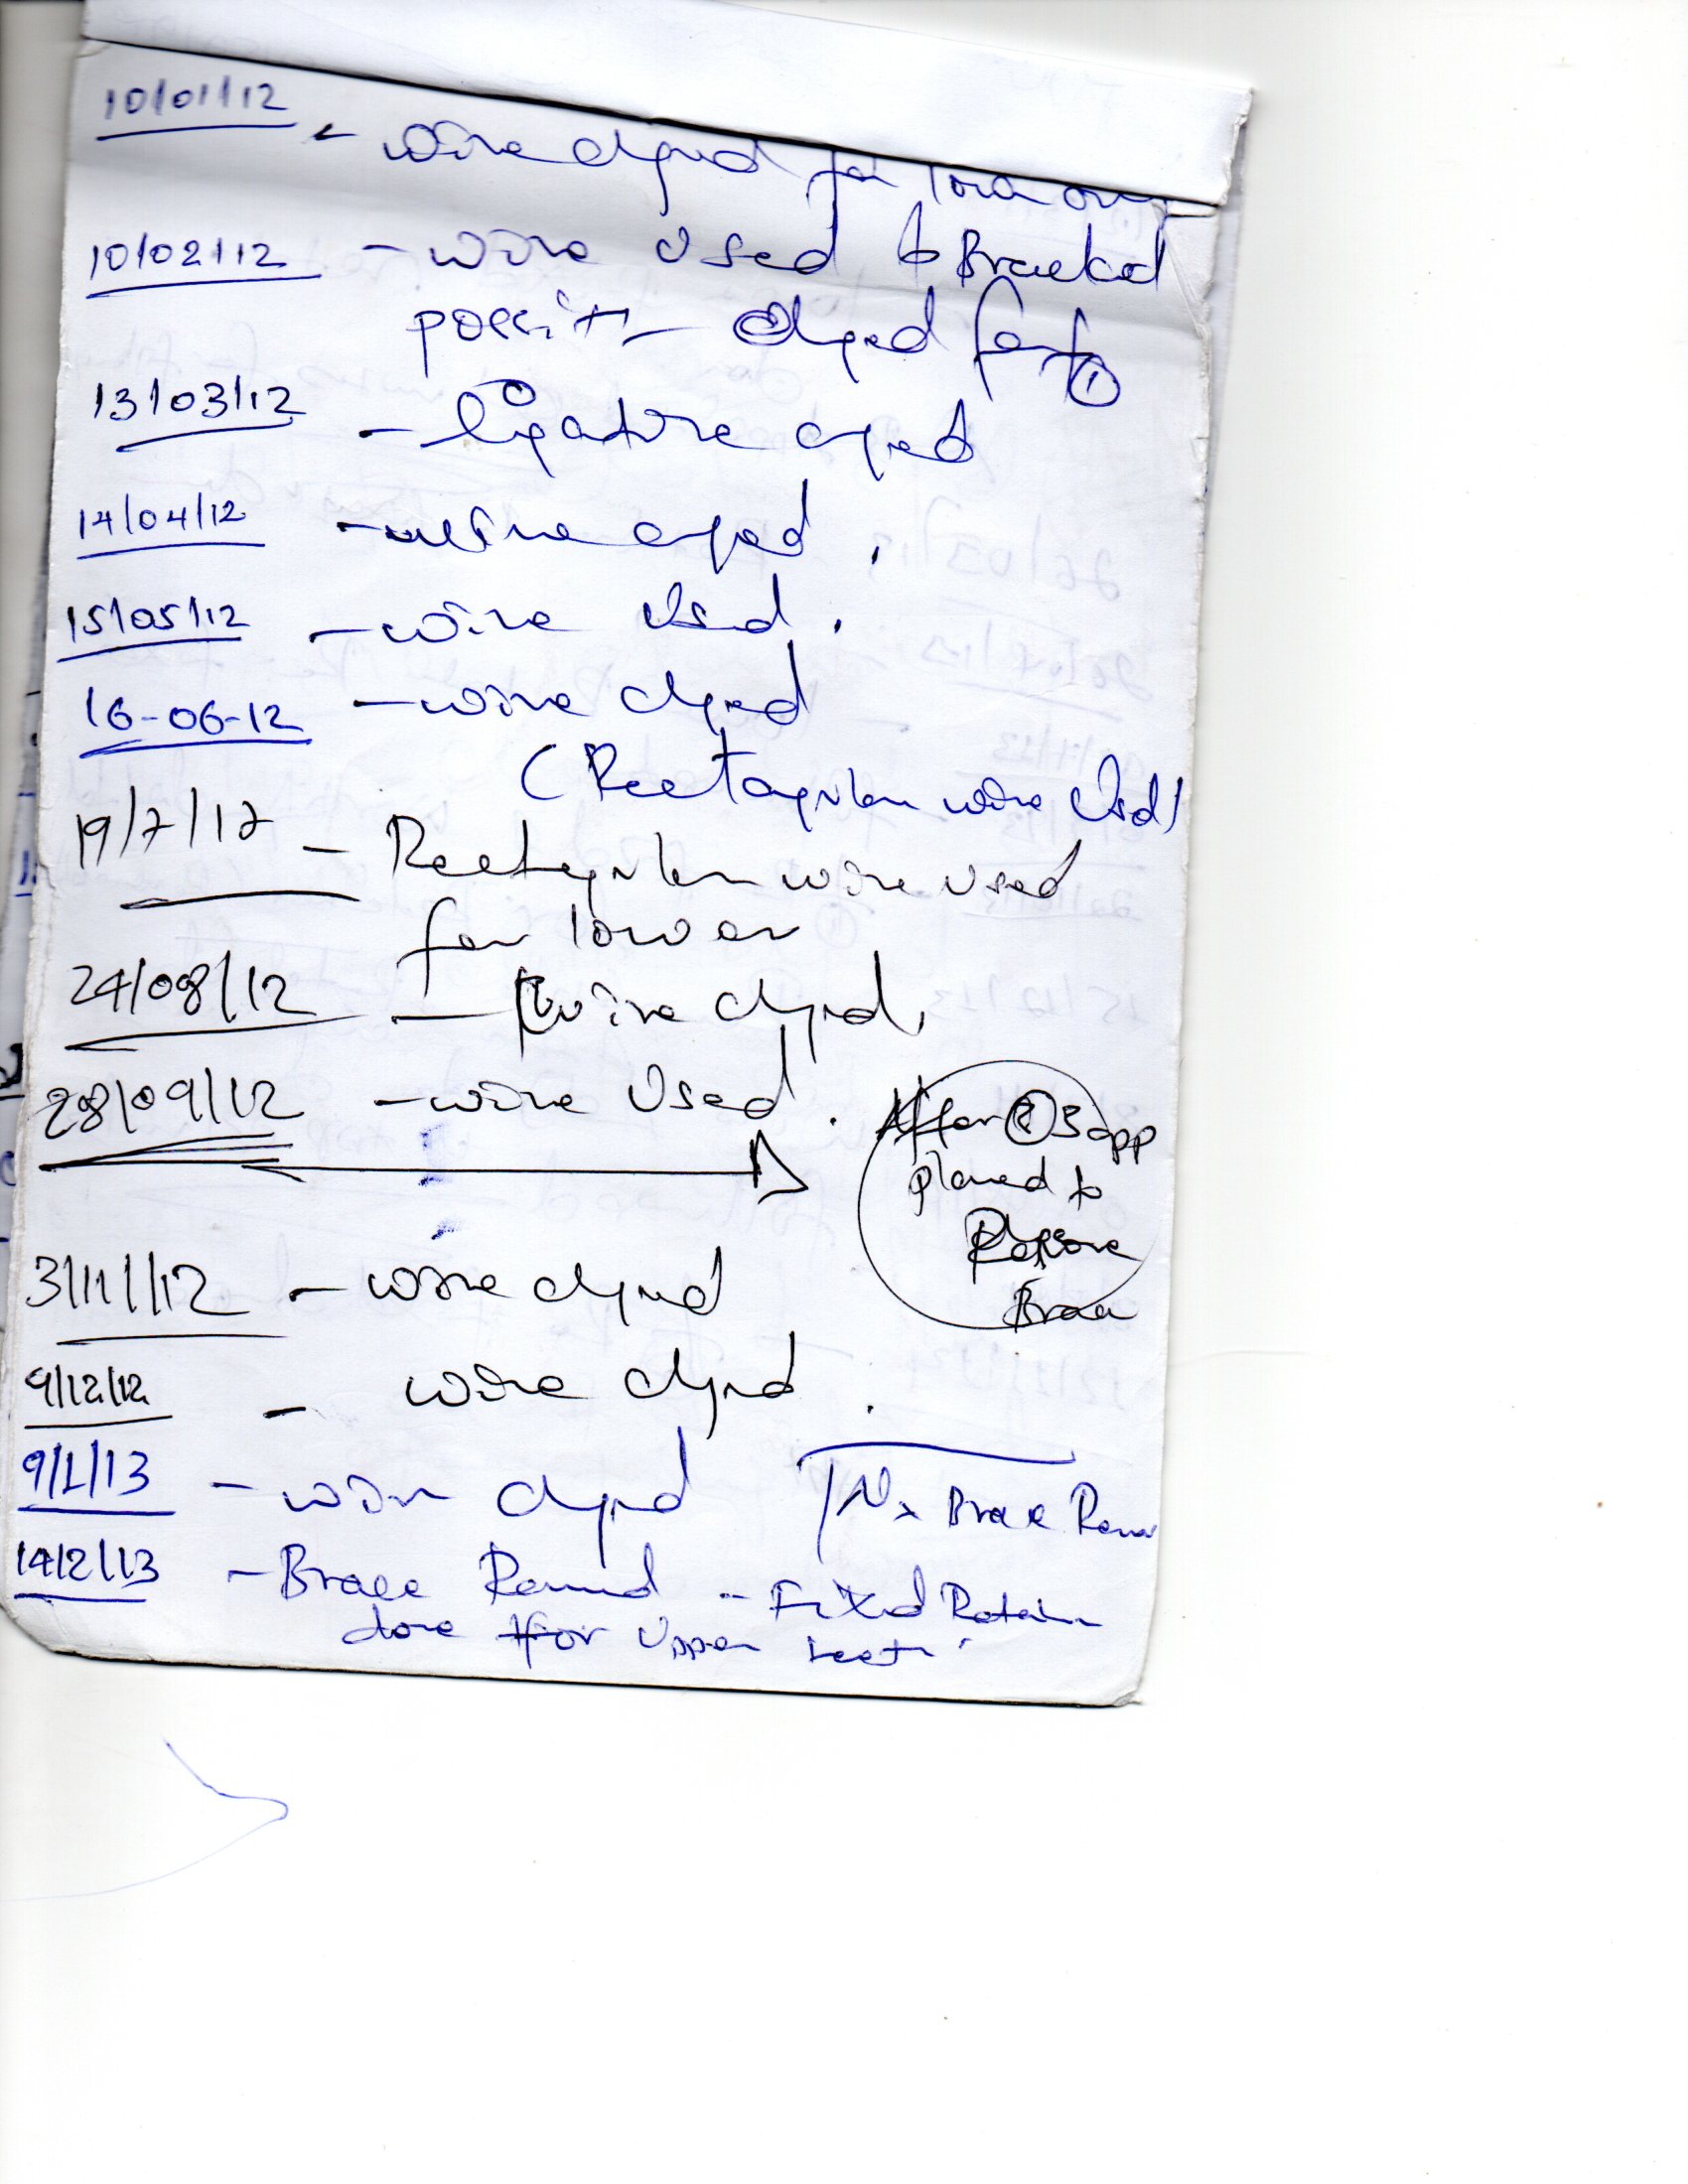 10/01/12 - wire chged for lower only
10/02/12 - wire Used & Bracket
positi- chged for
13/03/12 - ligature chged
14/04/12 - wire chged.
15/05/12 - wire Used.
16-06-12 - wire chged
(Rectangular wire Used)
19/7/12 - Rectangular wire used
for lower
24/08/12 - wire chged,
28/09/12 - wire Used.
After 3 app
planed to
Remove
Brace
31/11/12 - wire chged
9/12/12 - wire chged.
9/1/13 - wire chged
Nx Brace Remov
14/2/13 - Brace Remvd - Fixd Retain
done for Upper teeth